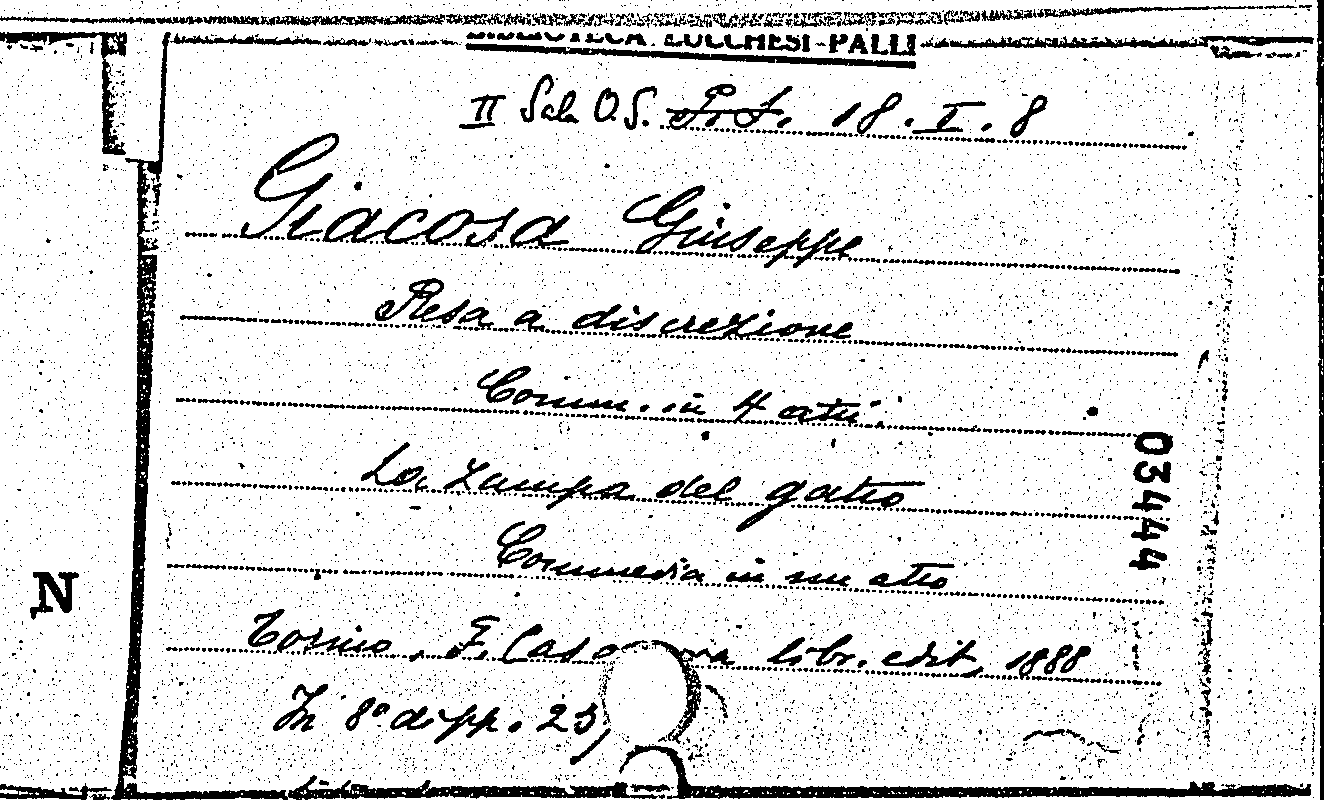 BIBLIOTECA LUCCHESI-PALLI
II Sala O.S. P.S. 18.I.8
Giacosa Giuseppe
Resa a discrezione
Comm. in 4 atti.
La zampa del gatto
Commedia in un atto
Torino, F. Casanova libr. edit, 1888
In 8° di pp. 25
03444
N